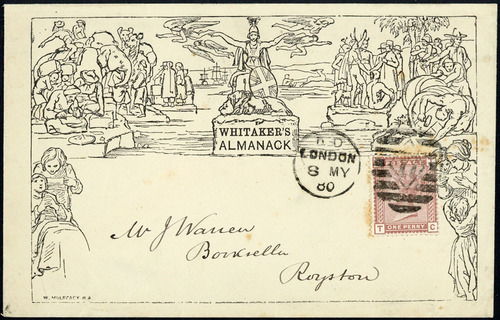 WHITAKER'S
ALMANACK
LONDON
8 MY
80
ONE PENNY
T C
Mr J Warren
Bookseller
Royston
W. MULREADY. R.A.